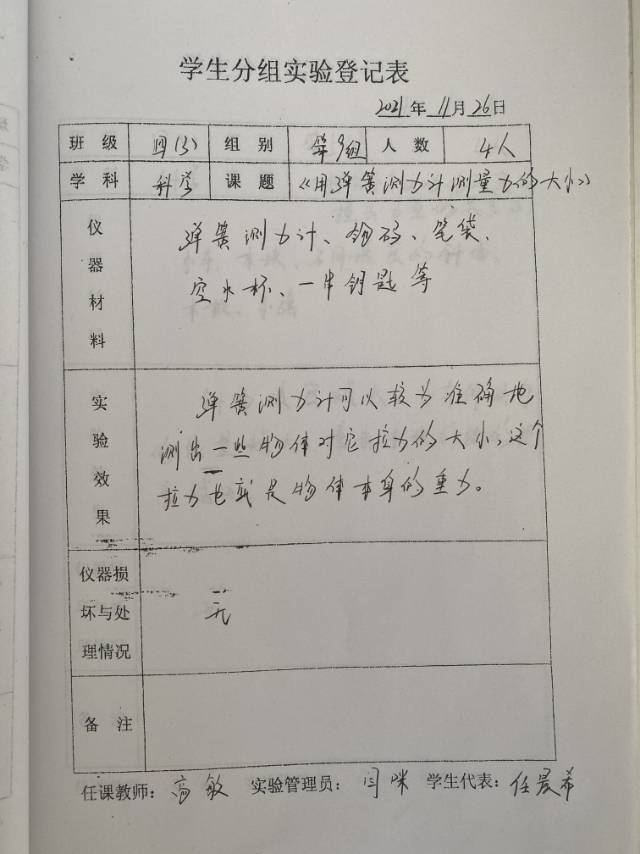 学生分组实验登记表
2021年11月26日
班级 四(3) 组别 第9组 人数 4人
学科 科学 课题 《用弹簧测力计测量力的大小》
仪器材料 弹簧测力计、钩码、笔袋、
空水杯、一串钥匙等
实验效果 弹簧测力计可以较为准确地
测出一些物体对它拉力的大小,这个
拉力也就是物体本身的重力。
仪器损
坏与处 无
理情况
备注
任课教师:高敏 实验管理员:闫咪 学生代表:任晨希